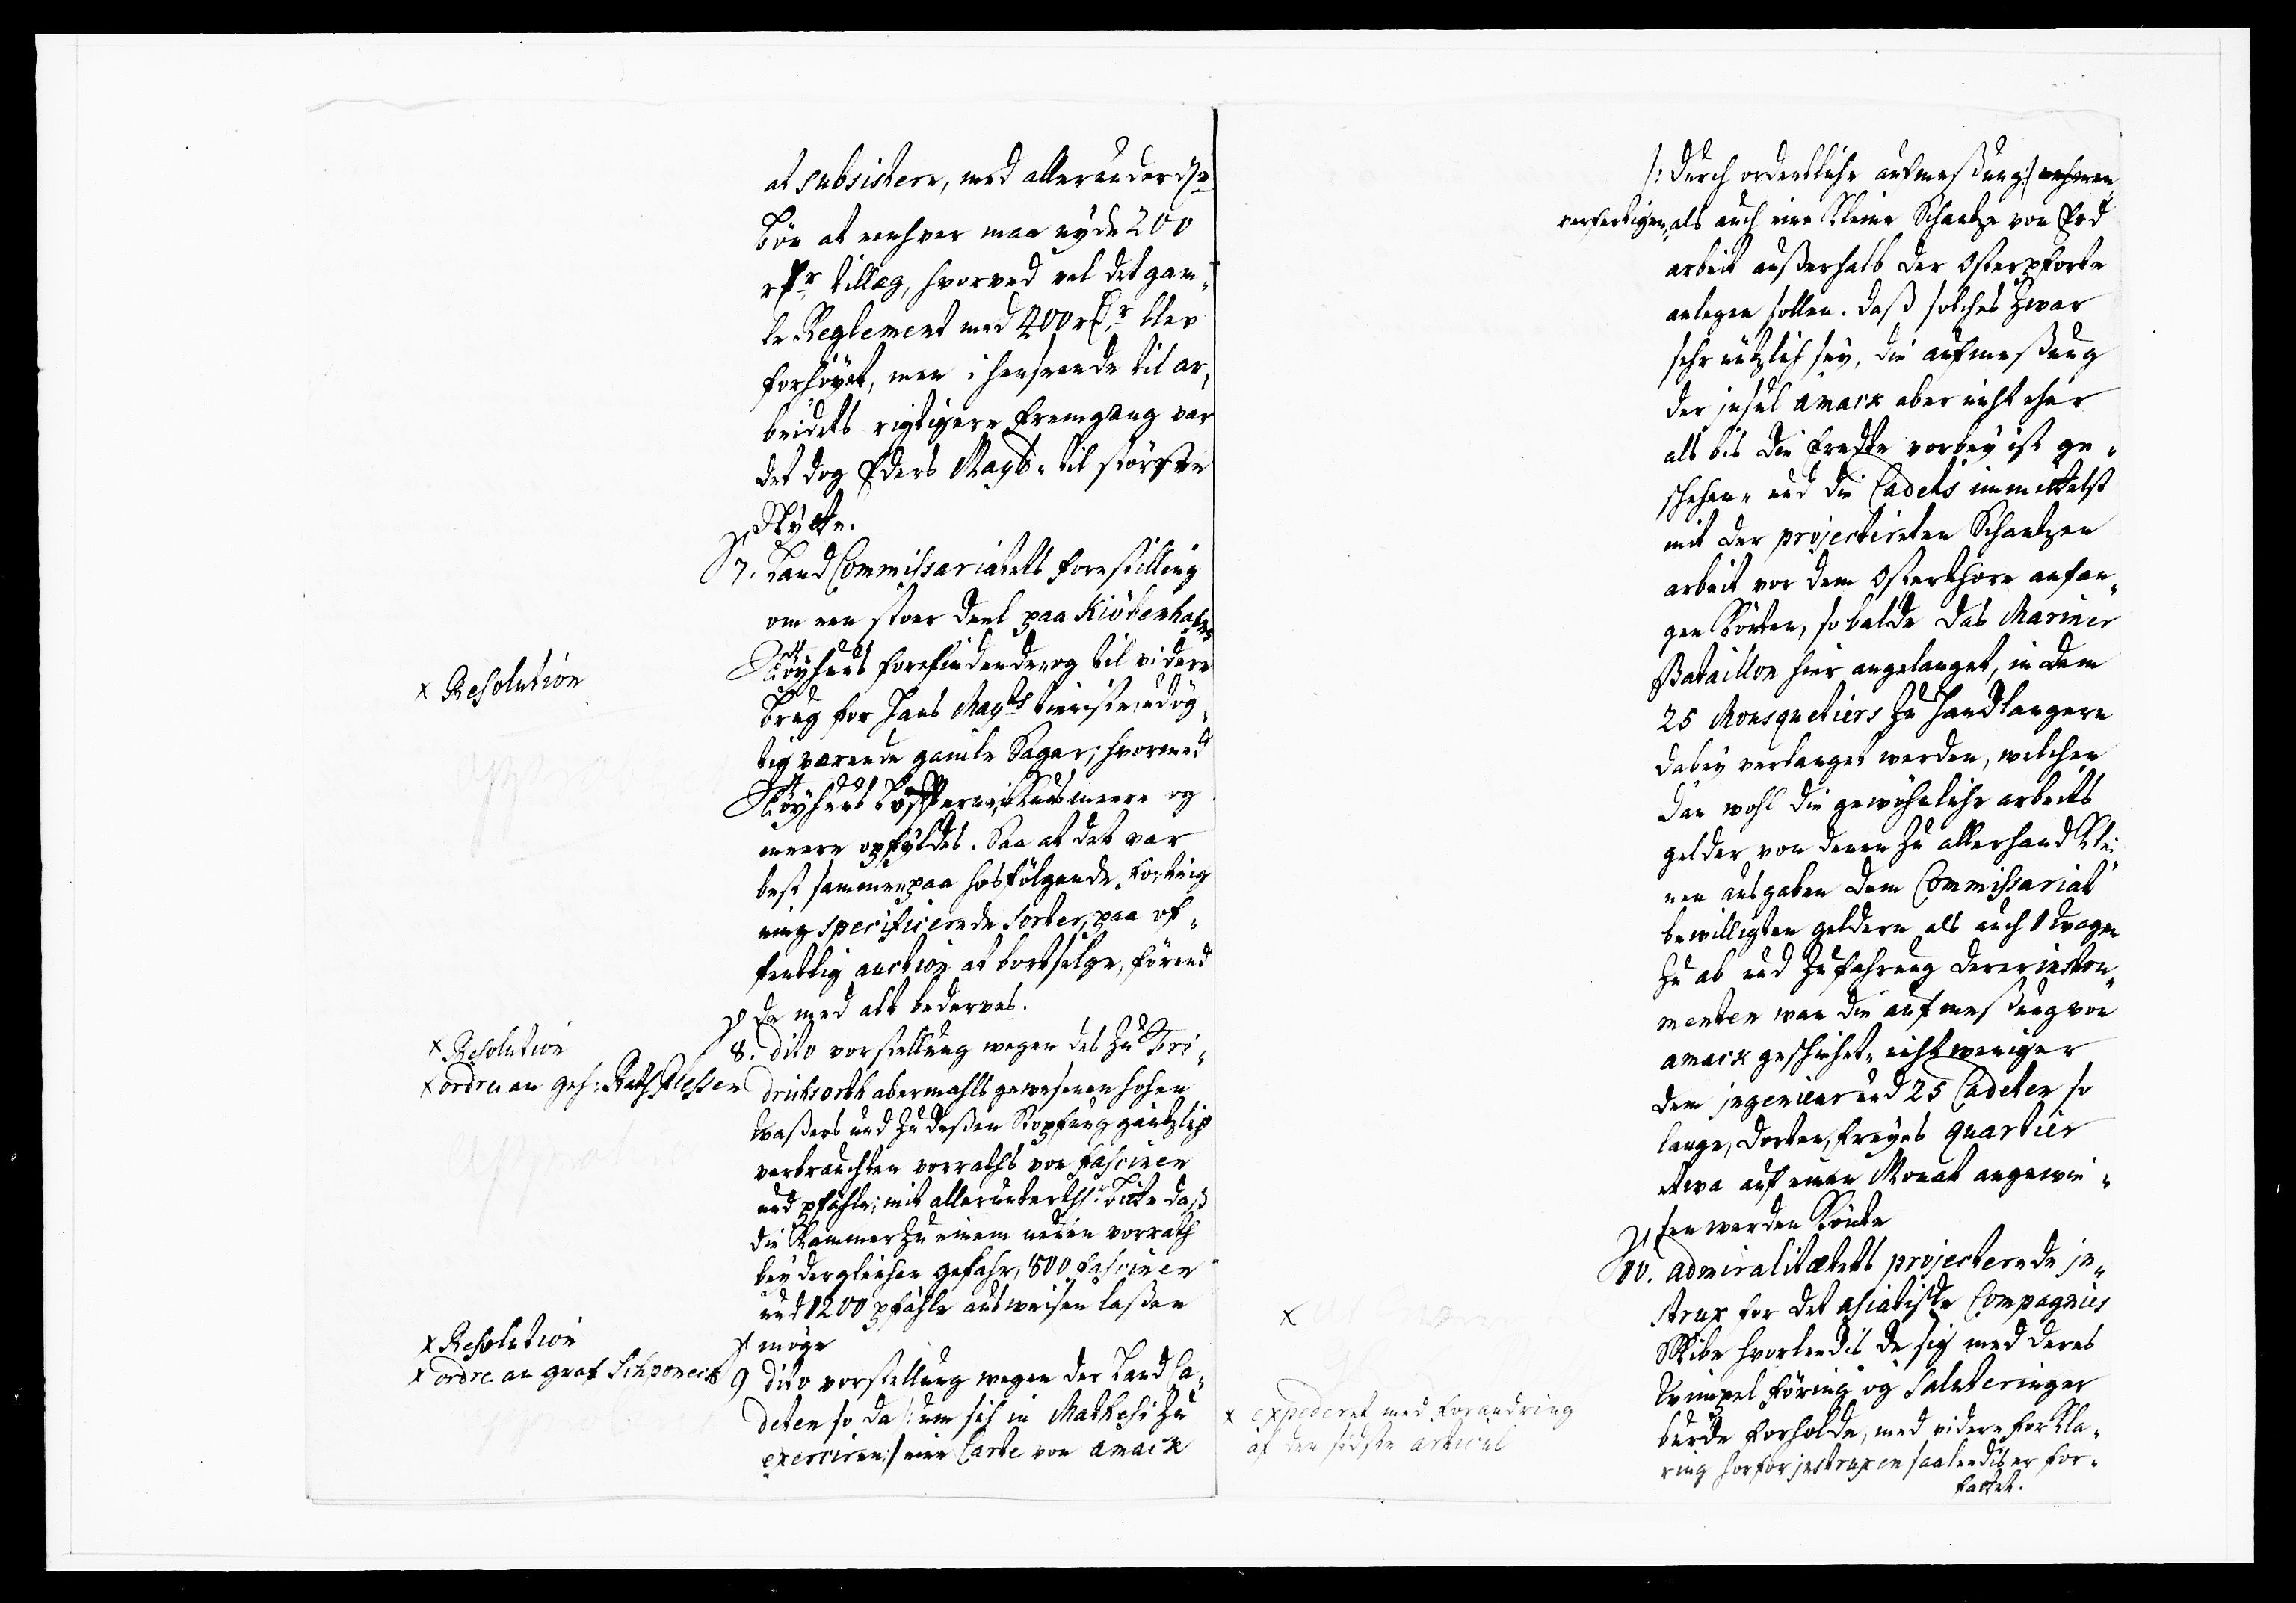 at subsistere, med allerunderd:se
bön at eenhver maa nyde 200
rdr. tillæg, hvorved vel det gam„
le Reglement med 200 rdr. blev
forhöyet, men i henseende til ar„
beidets rigtigere fremgang var
det dog Eders Mayts. til störste
Nytte.
7. Land Commissariatets forestilling
om een stoer deel paa Kiöbenhafns
Töyhuus forefindende, og til videre
brug for Hans Mayts tieniste, udög„
tig værende gamle Sager; hvormed
Töyhuus meere og
meere opfyldes. Saa at det var
best sammen, paa hosfölgende forteig
ning specificerede sorter, paa of„
fentlig auction at bortselge, förend
de med alt bederves.
x Resolution
x Resolution
x ordre an geh: Rath Plessen
8. dito vorstellung wegen des zu Fri„
drichsorth abermahls gewesenen hohen
waßers und zu deßen Stopfung gäntzlich
verbrauchten vorraths von Fascinen
und pfähle; mit allerunterth: bitte daß
die Kammer zu einem neuen vorrath
bey dergleichen gefahr, 800 Fascinen
und 1200 pfähle ausweisen laßen
möge
x Resolution
x ordre an graf Schponeck
9 dito vorstellung wegen der Land Ca„
deten so da /: um sich in Mathesi zu
exerciren :/ eine Carte von Amack
/: durch ordentliche aufmeßung :/ nehmen,
verfertigen, als auch eine kleine Schantze von Erd
arbeit außerhalb der Osterpforte
anlegen sollen. daß solches zwar
sehr nützlich sey, die aufmeßung
der jnsul Amack aber nicht eher
als bis die Erndte vorbey ist ge„
schehen„ und die Cadets immittelst
mit der projectirten Schantzen
arbeit vor dem Osterthore anfan„
gen könten, so balde das Marinier
Bataillon hier angelanget, in dem
25 Mousquetiers zu Handlangern
dabey verlanget werden, welchen
dan wohl die gewöhnliche arbeits
gelder von denen zu allerhand klei„
nen ausgaben dem Commissariat
bewilligten geldern als auch 1 wagen
zu ab und zufahrung derer instru„
menten wan die aufmeßung von
Amack geschiehet„ nicht weniger
dem jngenieur und 25 Cadeten so
lange, dorten, freyes quartier
etwa auf einen Monat angewie„
sen werden könte
x
x expederet med forandring
af den sidste articul
10. Admiralitætets projecterede jn„
strux for det asiatiske Compagnies
Skibe hvorleedis de sig med deres
Vimpel föring og Saluteringer
burde forholde, med videre forkla„
ring hvorfor jnstruxen saaleedis er for„
fattet.